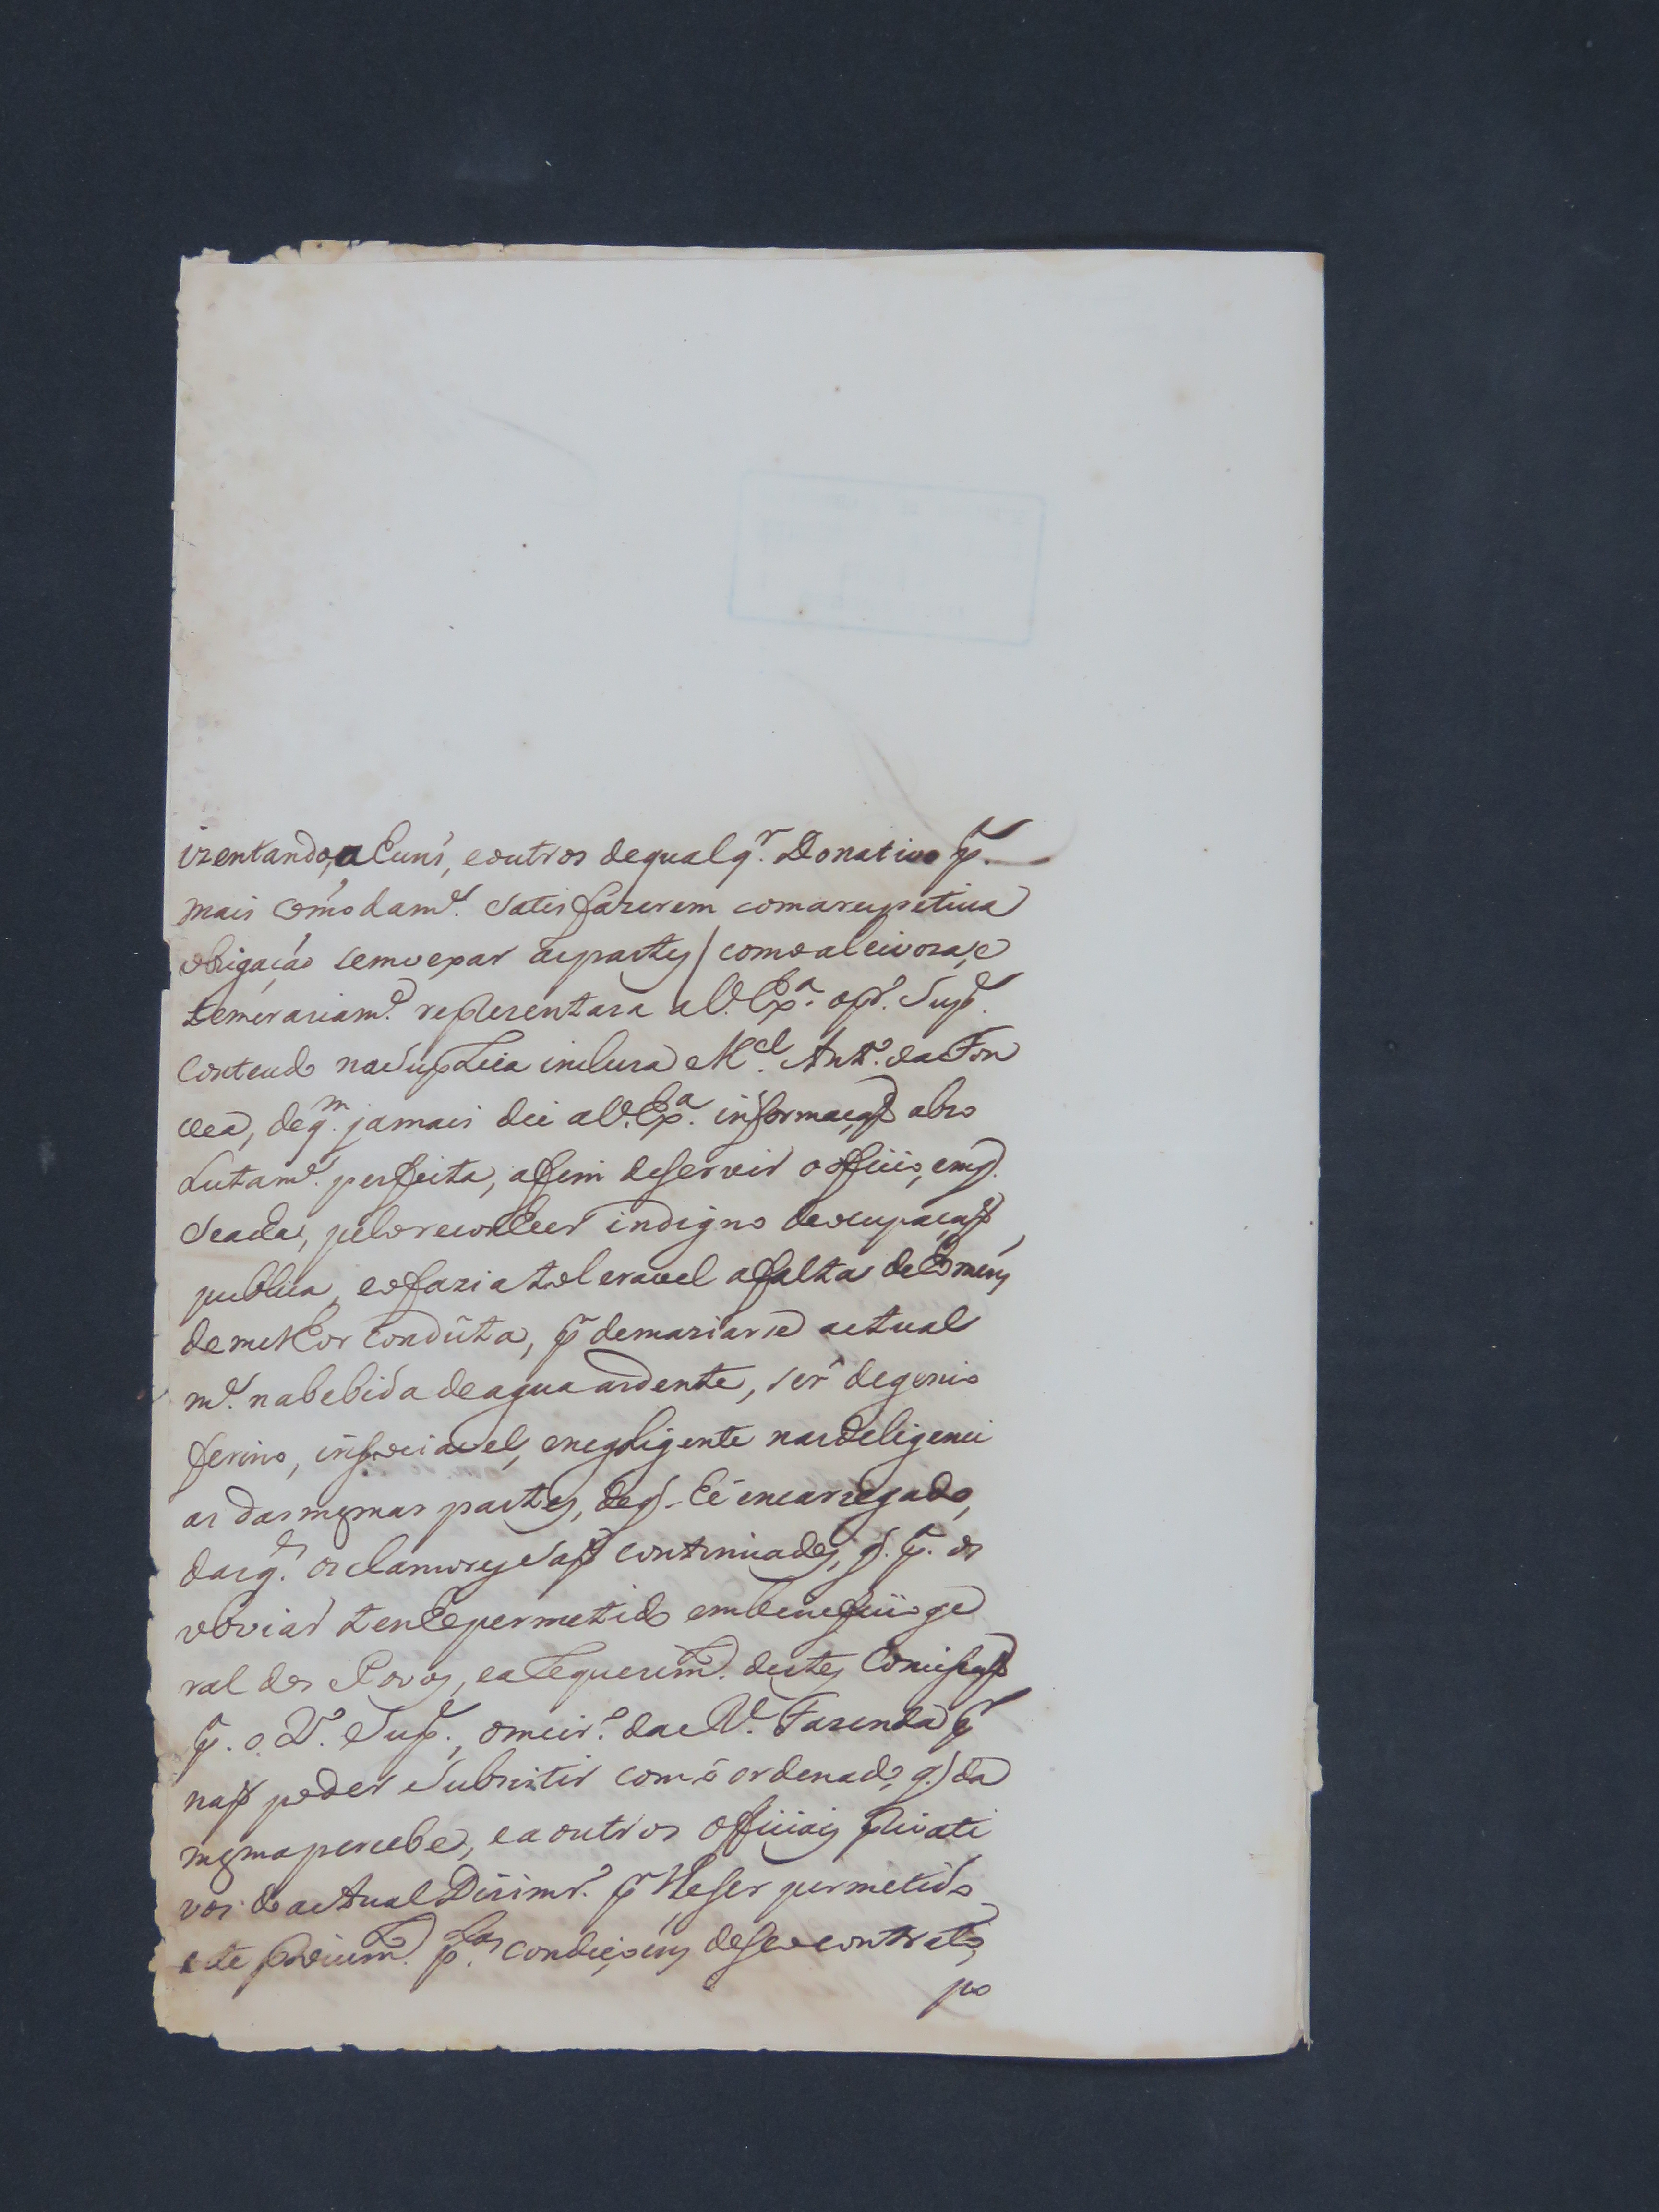 izentando, a huns, e outros de qualqr. Donativo pa.
mais comodamte. satisfazerem com a respetiva
obrigação sem vexar as partes / como aleivoza, e
temerariamte. reprezentara a V. Exa. o pro. Supe.
conteudo na suplica incluza Mel. Anto. da Fon
ceca, de qm. jamais dei a V. Exa. informação abso
lutamte. perfeita, a fim de servir o officio, emq.
se acha, pelo reconhecer indigno de ocupação
publica, e o fazia toleravel a falta de homens
de melhor conduta, pr demaziarse actual
mte. na bebida de agua ardente, ser de genio
ferino, insociavel, e negligente nas deligenci
as das mesmas partes, de q. hé encarregado,
das qs. os clamores são continuados, q. pa. os
obviar tenho permetido em beneficio ge
ral dos Povos, e a requerimto. destes comissão
pa. o do. Supe., o meirо. da Rl. Fazenda pr
não poder subzistir com o ordenado, q. da
mesma percebe, e a outros officiais privati
vos do actual Dizimro. pr lhe ser permetido
este provimto. plas. condiçoens de seo contrato,
po